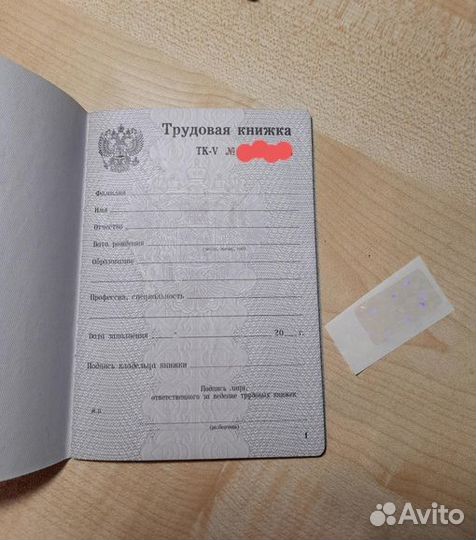 Трудовая книжка
ТК-V №
Фамилия
Имя
Отчество
Дата рождения
(число, месяц, год)
Образование
Профессия, специальность
Дата заполнения 20 г.
Подпись владельца книжки
Подпись лица,
ответственного за ведение трудовых книжек
М.П
(разборчиво)
1
Avito